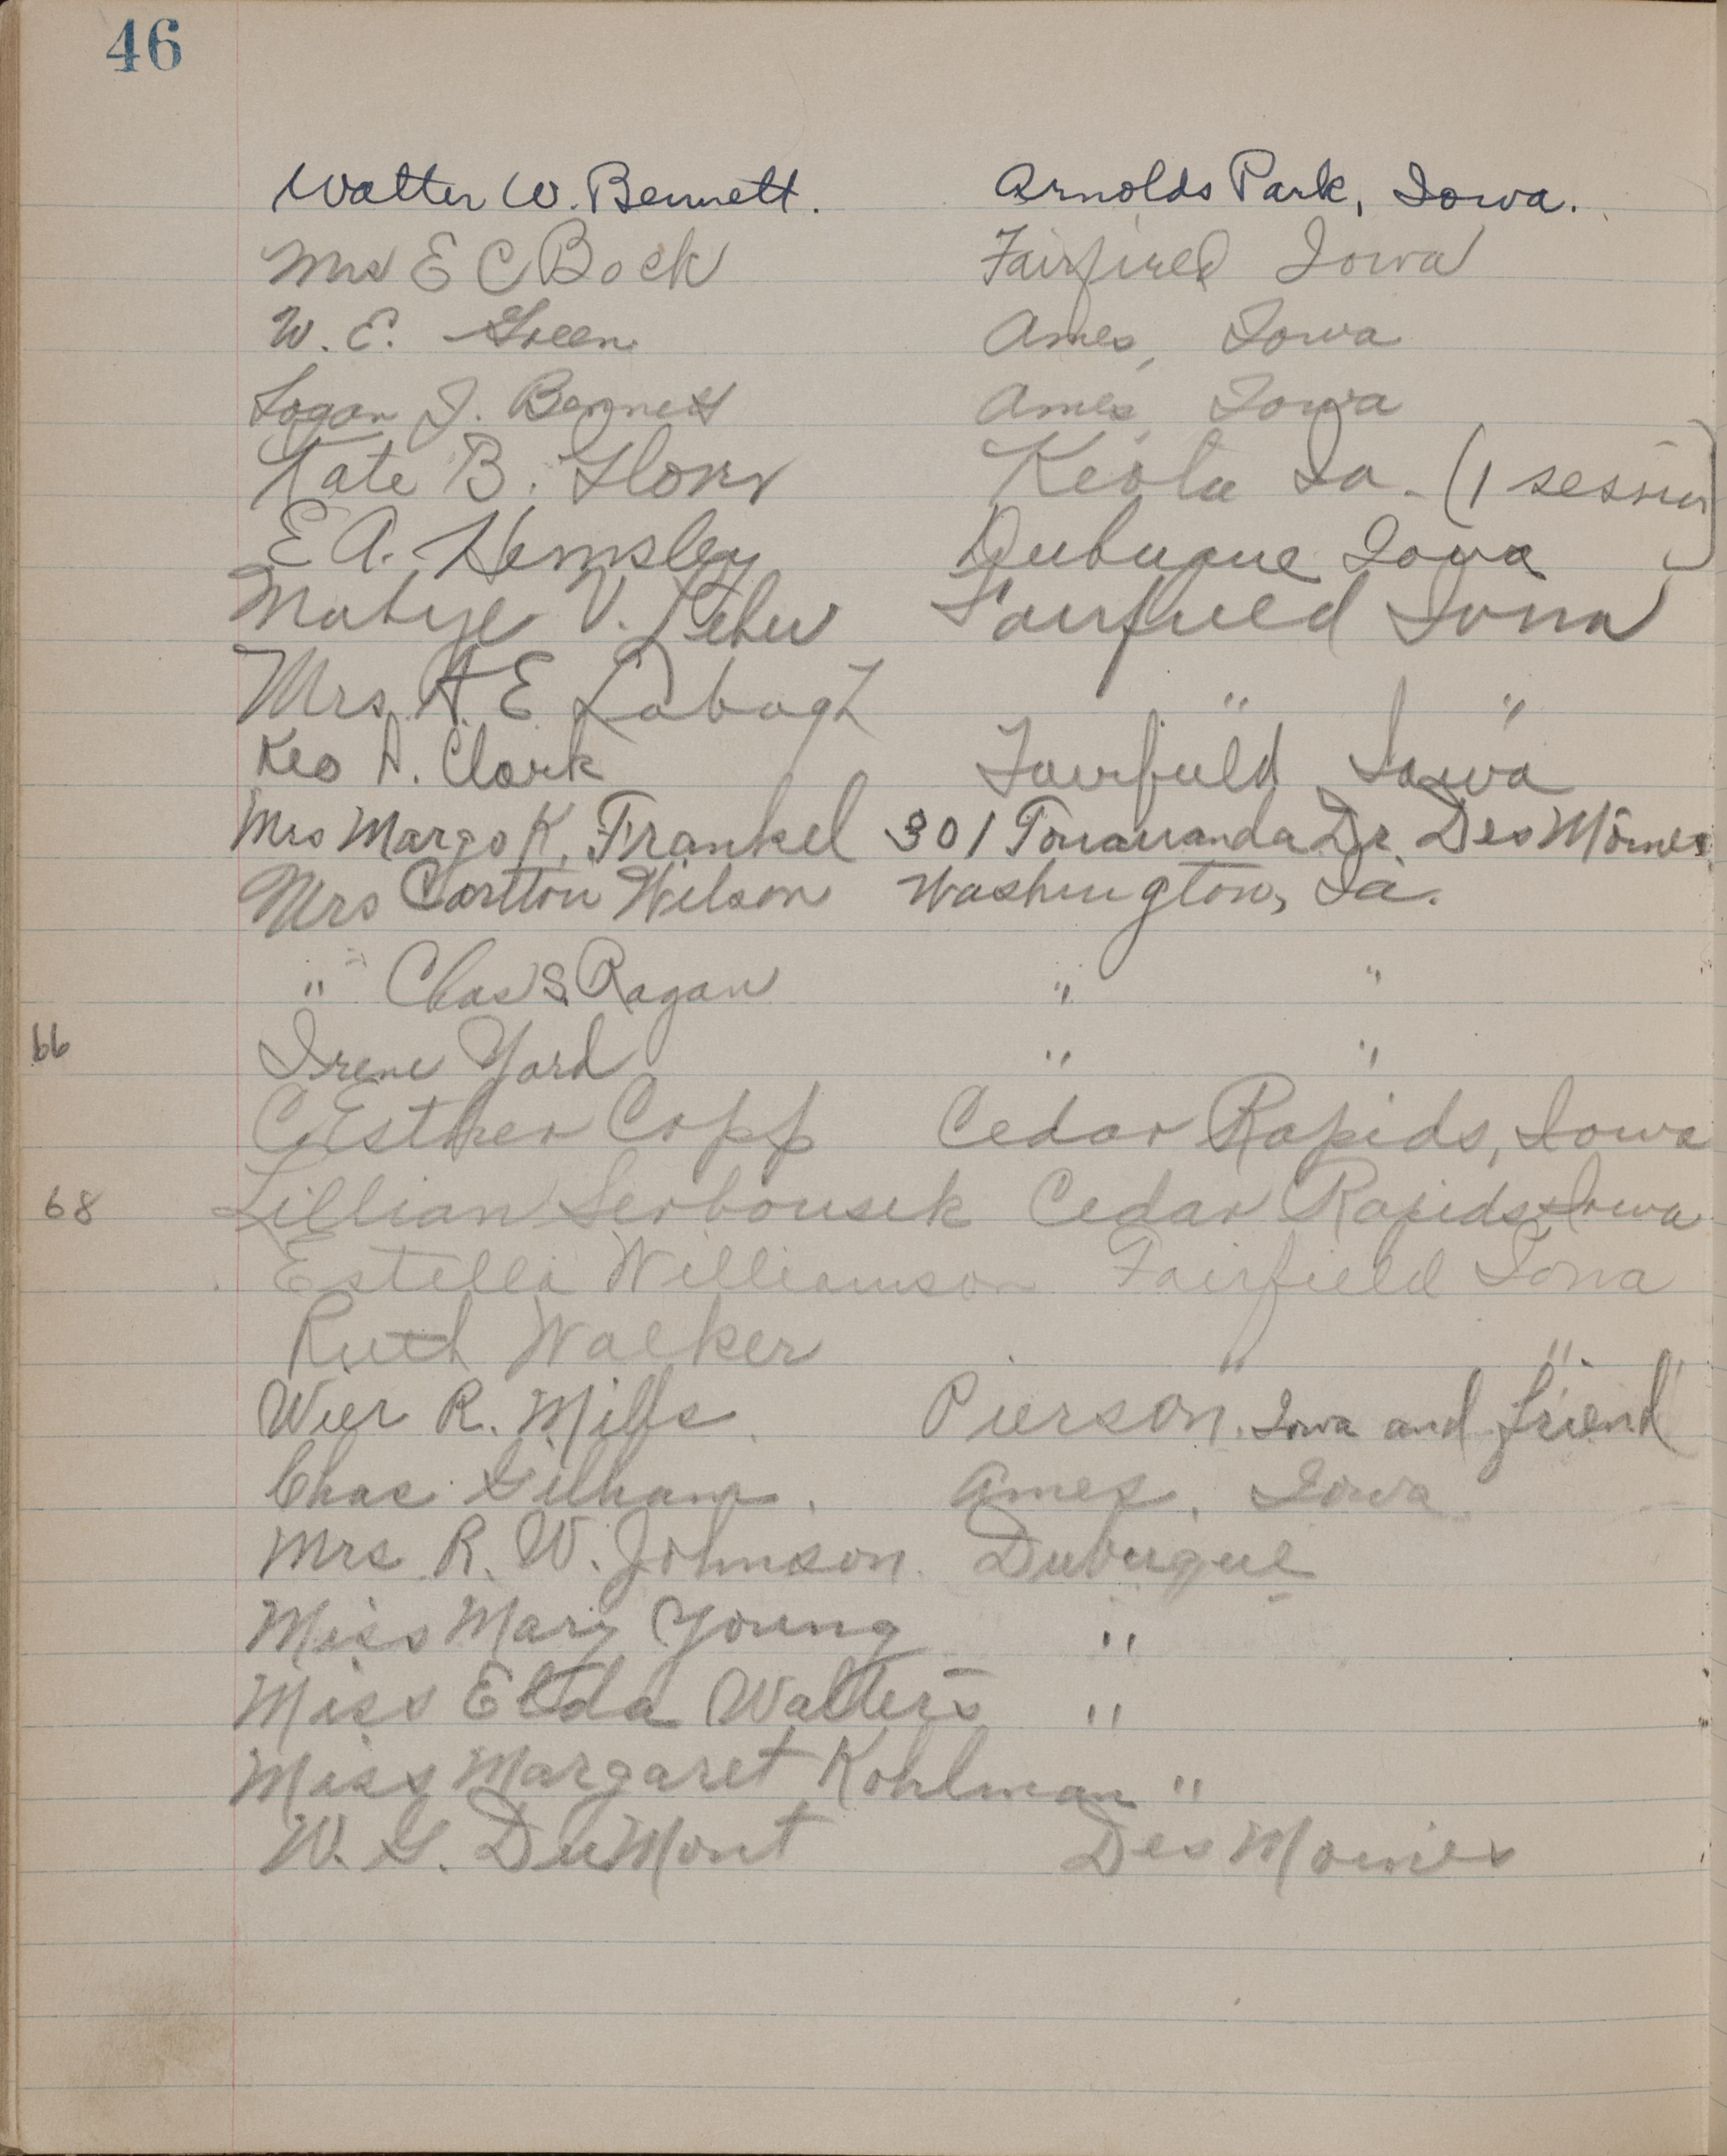 46
Walter W. Bennett. Arnolds Park, Iowa.
Mrs E C Bock Fairfield Iowa
W. E. Green Ames, Iowa
Logan J. Bennett Ames, Iowa
Kate B. Keota Ia. (1 session)
E A. Hemsley Dubuque Iowa
V. Fairfield Iowa
Mrs A. E Labagh " "
Keo A. Clark Fairfield Iowa
Mrs Margo K. Frankel 301 Tonawanda Dr. Des Moines
Mrs Carlton Wilson Washington, Ia.
" Chas S. Ragan " "
66 Irene Yard " "
C. Esther Copp Cedar Rapids, Iowa
68 Lillian Serbousek Cedar Rapids, Iowa
Estella Williamson Fairfield Iowa
Ruth Walker " "
Wier R. Mills Pierson, Iowa and friend
Chas Gilham. Ames, Iowa
Mrs R. W. Johnson Dubuque
Miss Mary Young "
Miss Elda Walters "
Miss Margaret Kohlman "
W. G. DuMont Des Moines